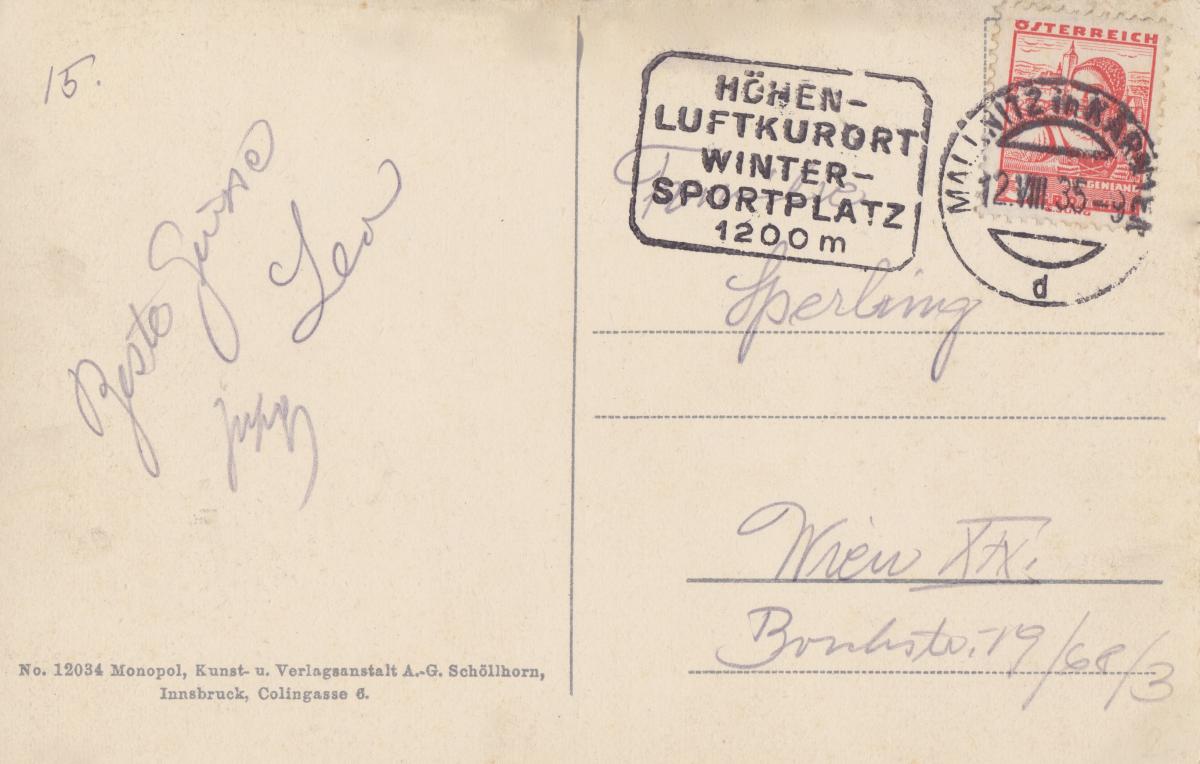 15.
Beste Grüsse
Leo
No. 12034 Monopol, Kunst- u. Verlagsanstalt A.-G. Schöllhorn,
Innsbruck, Colingasse 6.
HÖHEN-
LUFTKURORT
WINTER-
SPORTPLATZ
1200 m
ÖSTERREICH
MALLNITZ in KÄRNTEN
12.VIII.35-9
d
Familie
Sperling
Wien XIX.
19/68/3